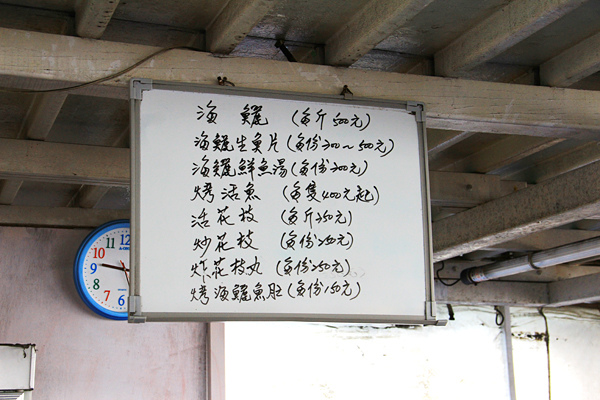 海鱺 (每斤500元)
海鱺生魚片(每份300~500元)
海鱺鮮魚湯(每份300元)
烤活魚 (每隻400元起)
活花枝 (每斤350元)
炒花枝 (每份250元)
炸花枝丸 (每份250元)
烤海鱺魚肚(每份150元)
11 12
10
9
8
7 6